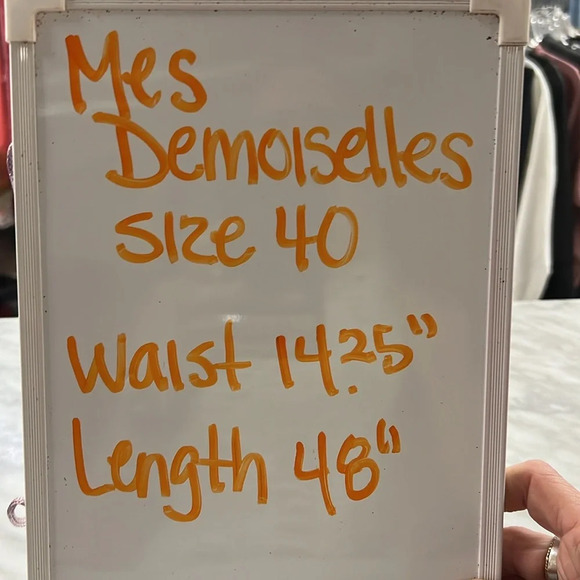 Mes
Demoiselles
size 40
Waist 14.25"
Length 48"